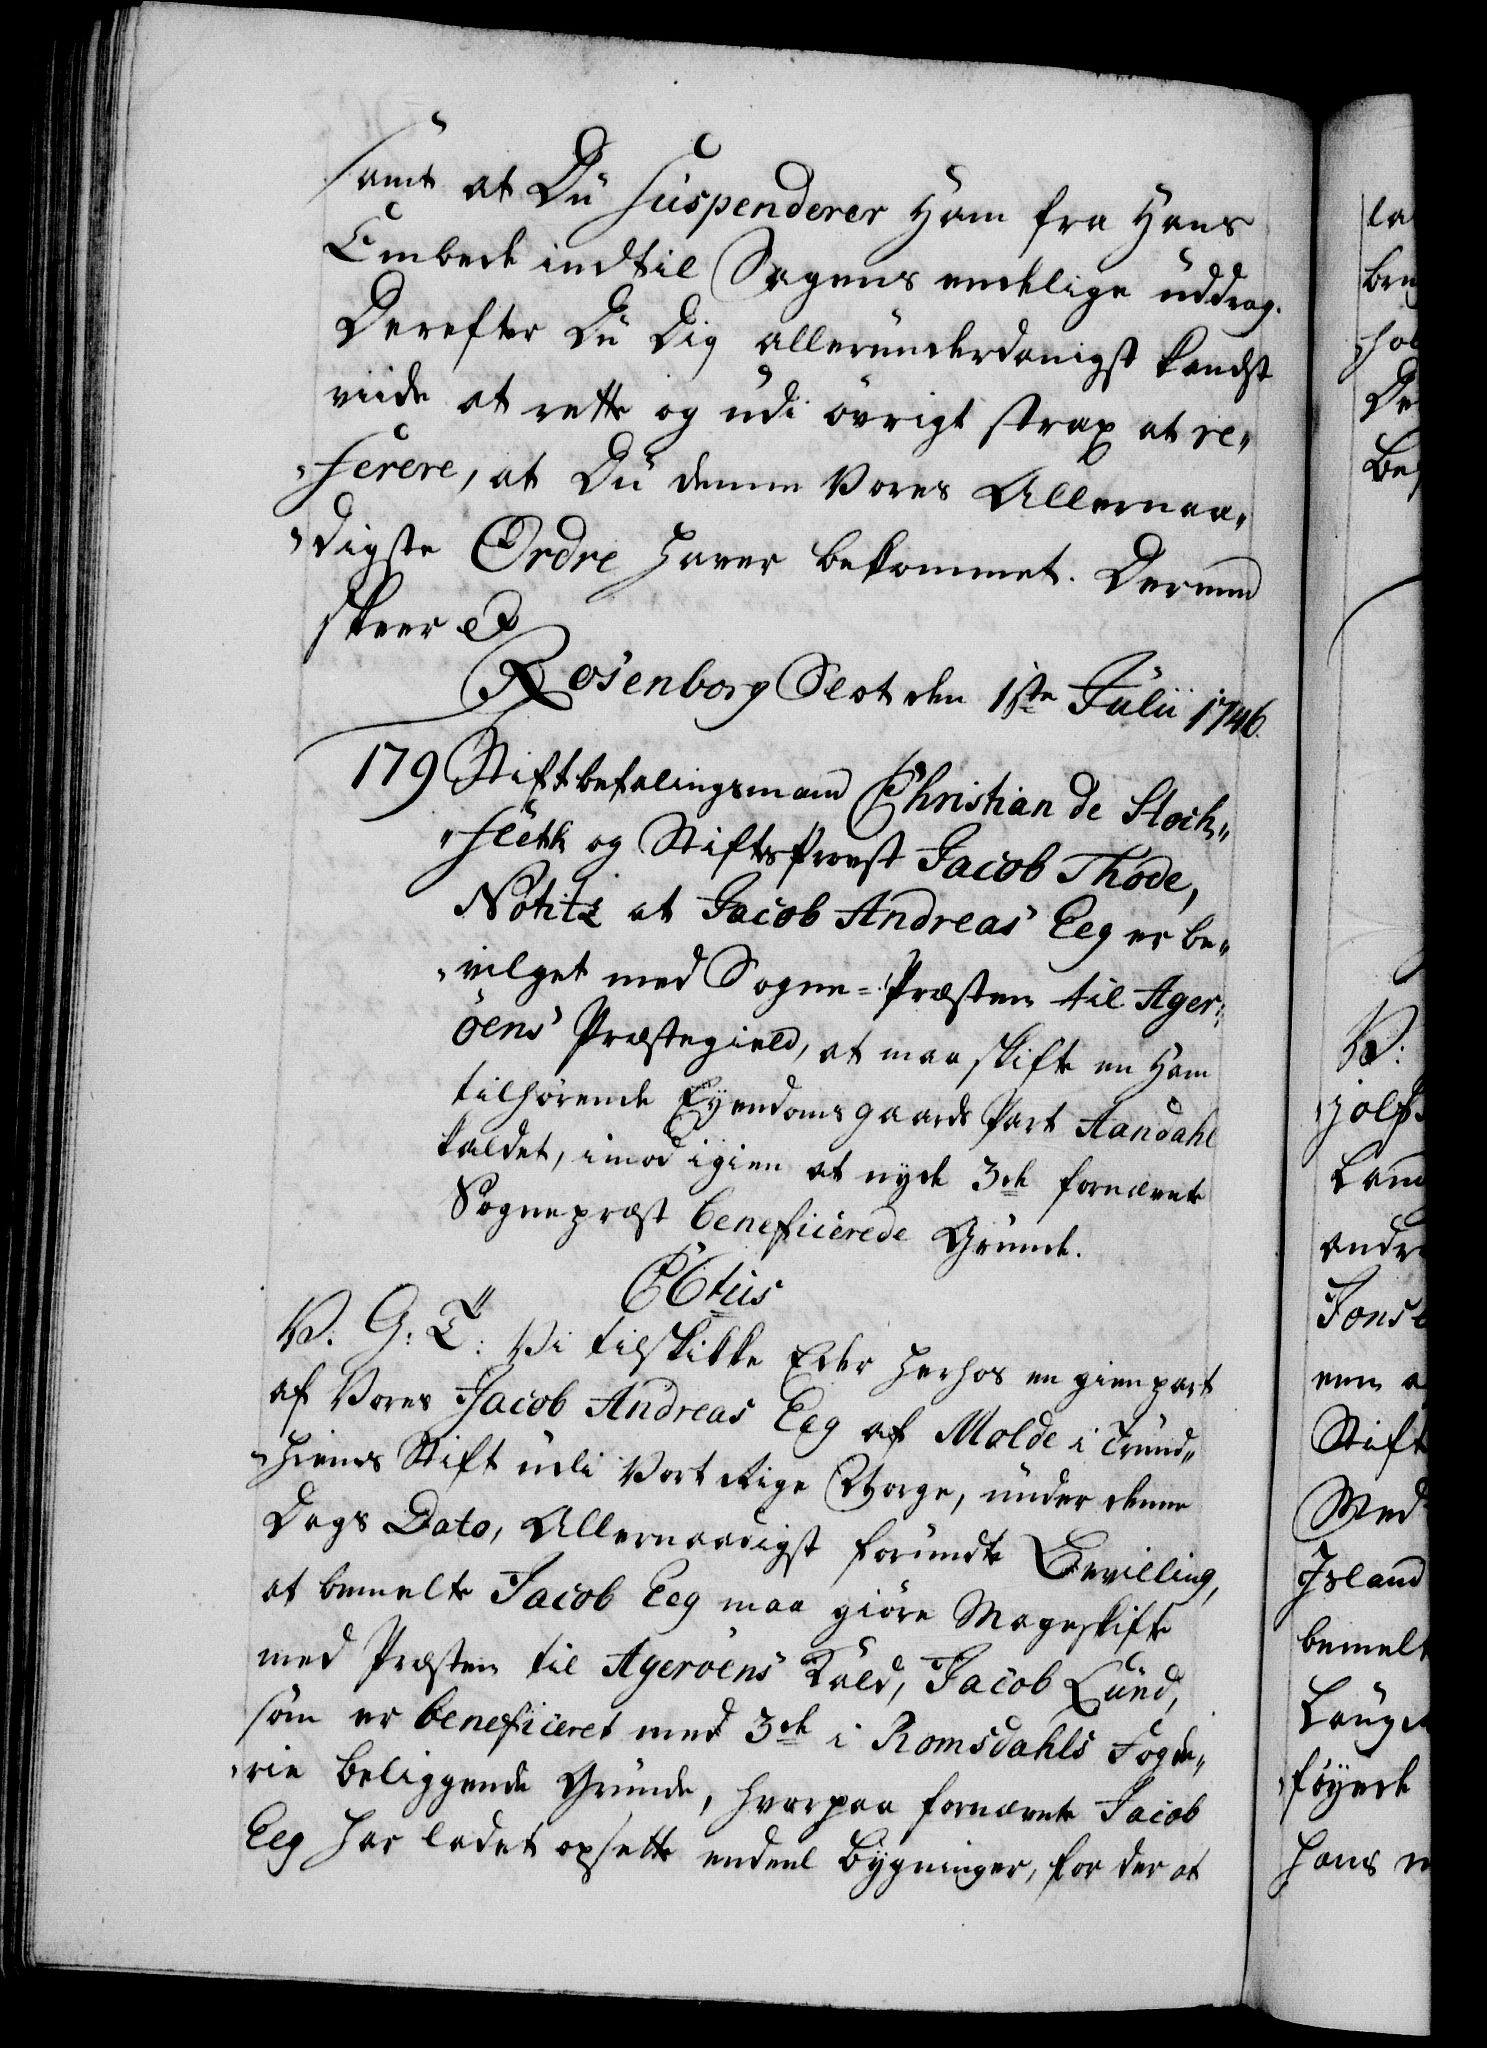 samt at Du Suspenderer Ham fra Hans
Embede indtil Sagens endelige uddrag.
Derefter Du Dig allerunderdanigst kandst
viide at rette og udi övrigt strax at re„
„ferere, at Du denne Vores Allernaa„
„digste Ordre haver bekommet. Dermed
skeer &c
Rosenborg Slot den 1ste Julii 1746.
179 Stiftbefalingsmand Christian de Stoch„
„fleth og Stiftsprovst Jacob Thode,
Notitz at Jacob Andreas Eeg er be„
„vilget med Sogne-Præsten til Ager„
öens Præstegield, at maa skifte en Ham
tilhörende Eyendoms gaards Part Aandahl
kaldet, imod igien at nyde 3de fornævnte
Sognepræst beneficerede Grunde.
C6tus
V. G: T: Vi tilskikke Eder herhos en gienpart
af Vores Jacob Andreas Eeg af Molde i Trund„
„hiems Stift udi Vort Rige Norge, under denne
Dags Dato, Allernaadigst forundte Bevilling,
at bemelte Jacob Eeg maa giöre Mageskifte
med Præsten til Ageröens Kald, Jacob Lund,
som er beneficeret med 3de i Romsdahls Fogde„
„rie beliggende Grunde, hvorpaa fornævnte Jacob
Eeg har ladet opsette endeel Bygninger, for der at